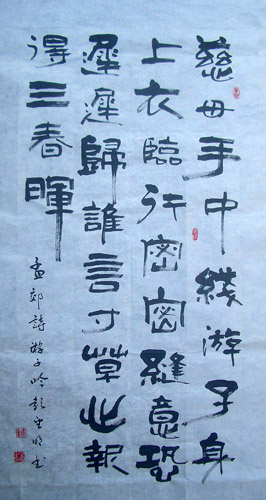 慈母手中綫游子身
上衣臨行密密縫意恐
遲遲歸誰言寸草心報
得三春暉
孟郊詩游子吟彭 明书